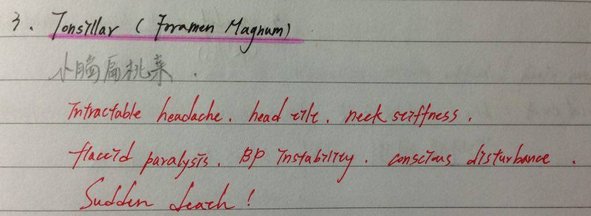 3. Tonsillar ( Foramen Magnum)
小脑扁桃体
Intractable headache. head tilt. neck stiffness.
flaccid paralysis. BP instability. conscious disturbance.
Sudden death!